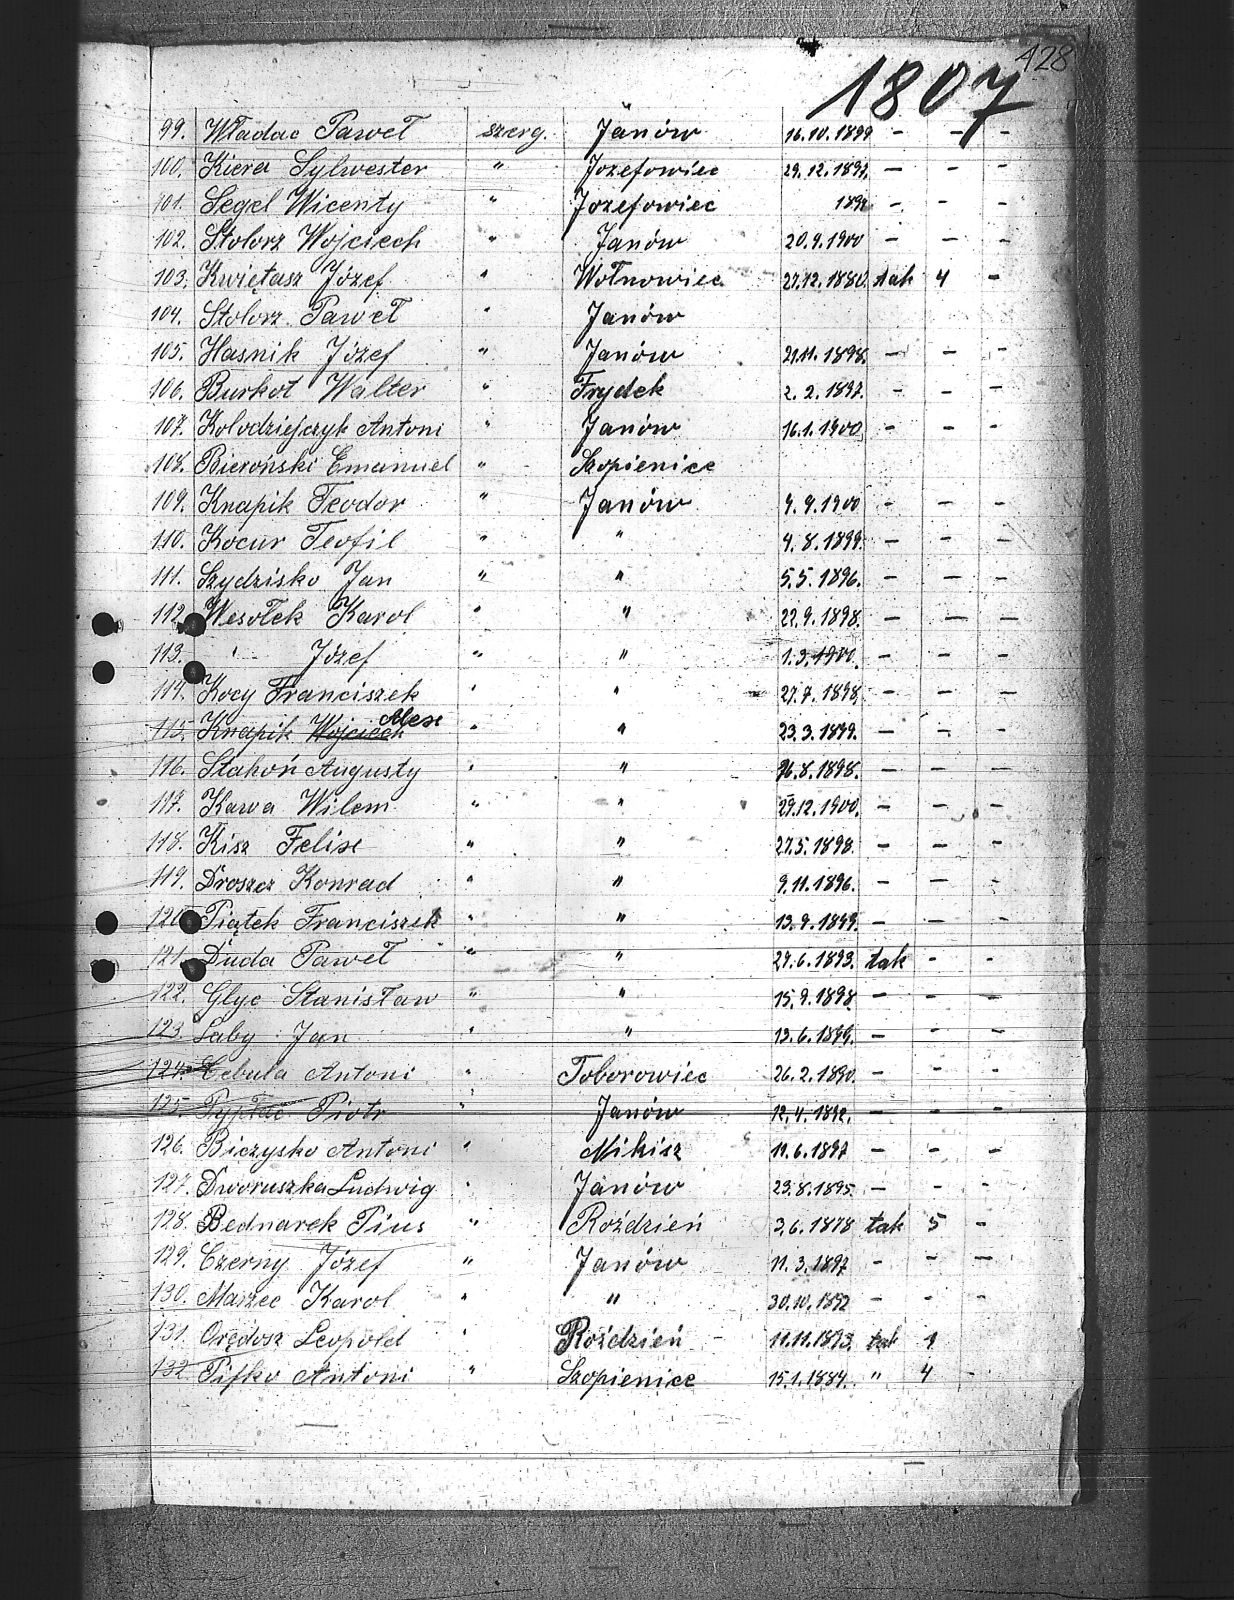 428
1807
99. Władac Paweł szerg. Janów 16.10.1899 - - -
100. Kiera Sylwester " Jozefowiec 29.12.1897. - - -
101. Segel Wicenty " Jozefowiec - - -
102. Stolorz Wojciech " Janów 20.9.1900 - - -
103. Kwiętasz Józef " Wełnowiec 27.12.1880. tak 4 -
104. Stolorz Paweł " Janów
105. Hasnik Józef " Janów 21.11.1898. - - -
106. Burkot Walter " Frydek 2.2.1897. - - -
107. Kolodziejczyk Antoni " Janów 16.1.1900 - - -
108. Bieroński Emanuel " Szopienice
109. Knapik Teodor " Janów 4.9.1900 - - -
110. Kocur Teofil " " 4.8.1899. - - -
111. Szydzisko Jan " " 5.5.1896. - - -
112. Wesołek Karol " " 22.9.1898. - - -
113. " Józef " " 1.3.1900. - - -
114. Kocy Franciszek " " 27.7.1898. - - -
115. Knapik Wojciech Alex " " 23.3.1899. - - -
116. Stakoń Augusty " " 26.8.1898. - - -
117. Kawa Wilem " " 29.12.1900. - - -
118. Kisz Felix " " 27.5.1898. - - -
119. Droszcz Konrad " " 9.11.1896. - - -
120. Piątek Franciszek " " 13.9.1899. - - -
121. Duda Paweł " " 29.6.1893. tak - -
122. Glyc Stanisław " " 15.9.1898 - - -
123. Laby Jan " " 13.6.1899. - - -
124. Cebula Antoni " Toborowiec 26.2.1890. - - -
125. Piotr " Janów 12.4.1892. - - -
126. Biczysko Antoni " Mikisz 11.6.1897 - - -
127. Dworuszka Ludwig " Janów 23.8.1895. - - -
128. Bednarek Pius " Roździeń 3.6.1878 tak 5 -
129. Czerny Józef " Janów 11.3.1897 - - -
130. Maszec Karol " " 30.10.1892 - - -
131. Orędosz Leopold " Roździeń 11.11.1893. tak 1
132. Pifko Antoni " Szopienice 15.1.1884. " 4 -